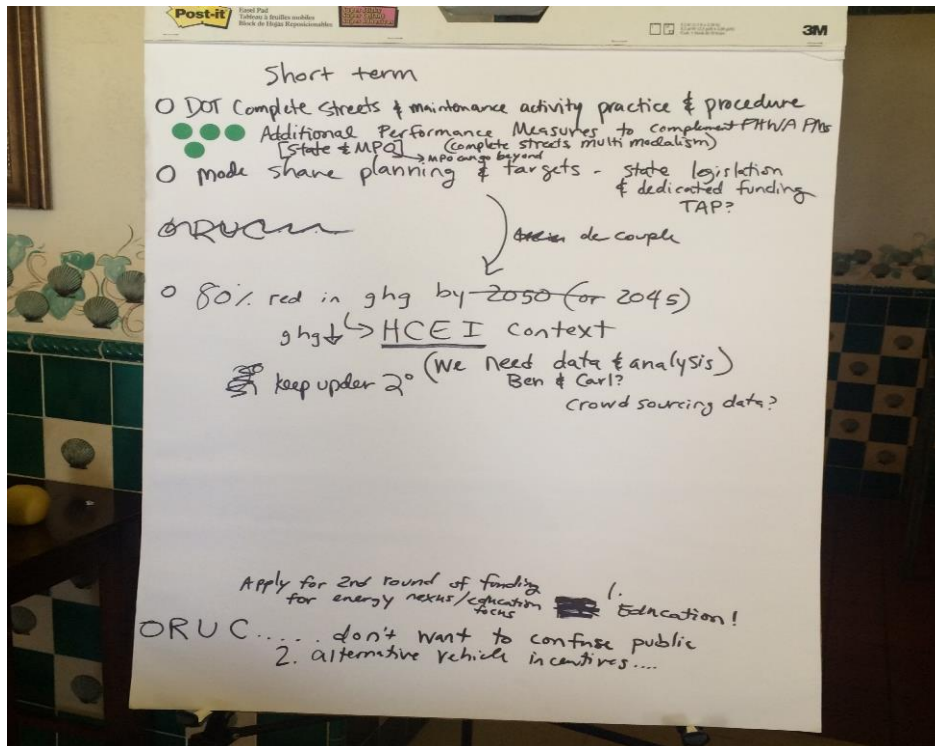 Post-it
Easel Pad
Tableau à feuilles mobiles
Block de Hojas Reposicionables
3M
Short term
O DOT Complete Streets & maintenance activity practice & procedure
Additional Performance Measures to complement FHWA PMs
[State & MPO] (complete streets multi modalism)
→ MPO can go beyond
O mode share planning & targets - state legislation
& dedicated funding
TAP?
ORUC
de couple
O 80% red in ghg by 2050 (or 2045)
ghg↓ ↳ HCEI Context
(We need data & analysis)
keep upder 2°
Ben & Carl?
Crowd sourcing data?
Apply for 2nd round of funding
for energy nexus/education
focus
1.
Education!
ORUC..... don't want to confuse public
2. alternative vehicle incentives....